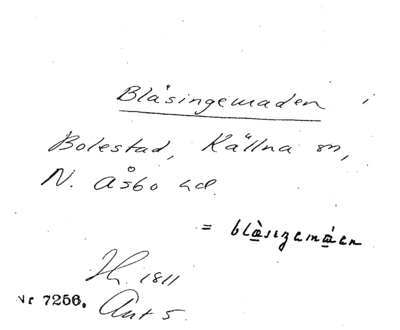 Bläsingemaden i
Bolestad, Källna sn,
N. Åsbo hd.
= blàsıgemáen
H. 1811
Nr 7256. Ant 5.